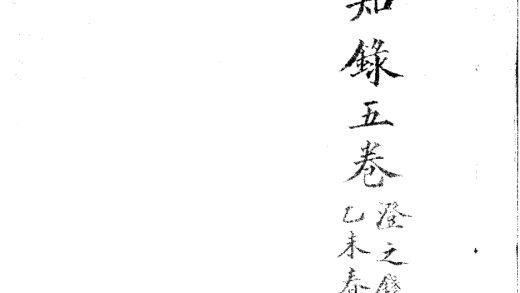 知錄五卷
澄之錢
乙未春